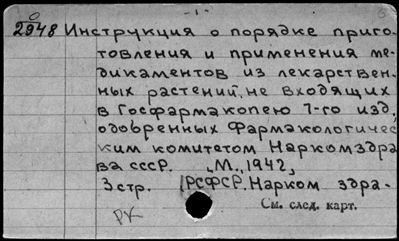 - 1 -
2948 Инструкция о порядке приго-
товления и применения ме-
дикаментов из лекарствен-
ных растений, не входящих
в Госфармакопею 7-го изд,
одобренных Фармакологичес
ким комитетом Наркомздра
ва СССР. „М., 1942„
3 стр. /РСФСР. Нарком здра-
См. след. карт.